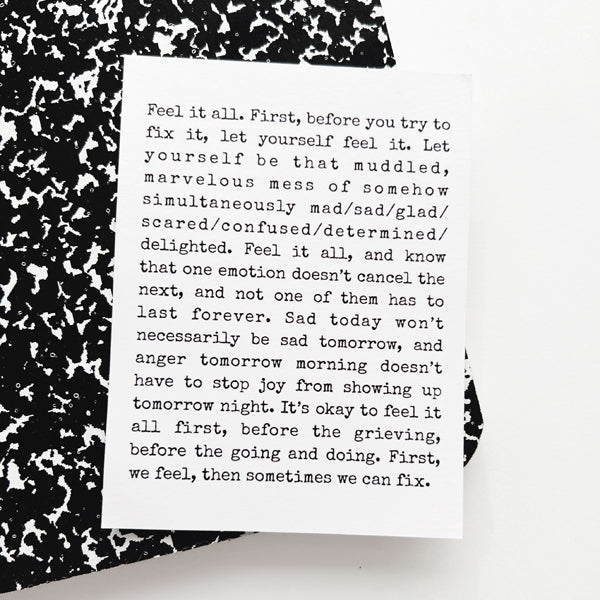 Feel it all. First, before you try to
fix it, let yourself feel it. Let
yourself be that muddled,
marvelous mess of somehow
simultaneously mad/sad/glad/
scared/confused/determined/
delighted. Feel it all, and know
that one emotion doesn't cancel the
next, and not one of them has to
last forever. Sad today won't
necessarily be sad tomorrow, and
anger tomorrow morning doesn't
have to stop joy from showing up
tomorrow night. It's okay to feel it
all first, before the grieving,
before the going and doing. First,
we feel, then sometimes we can fix.